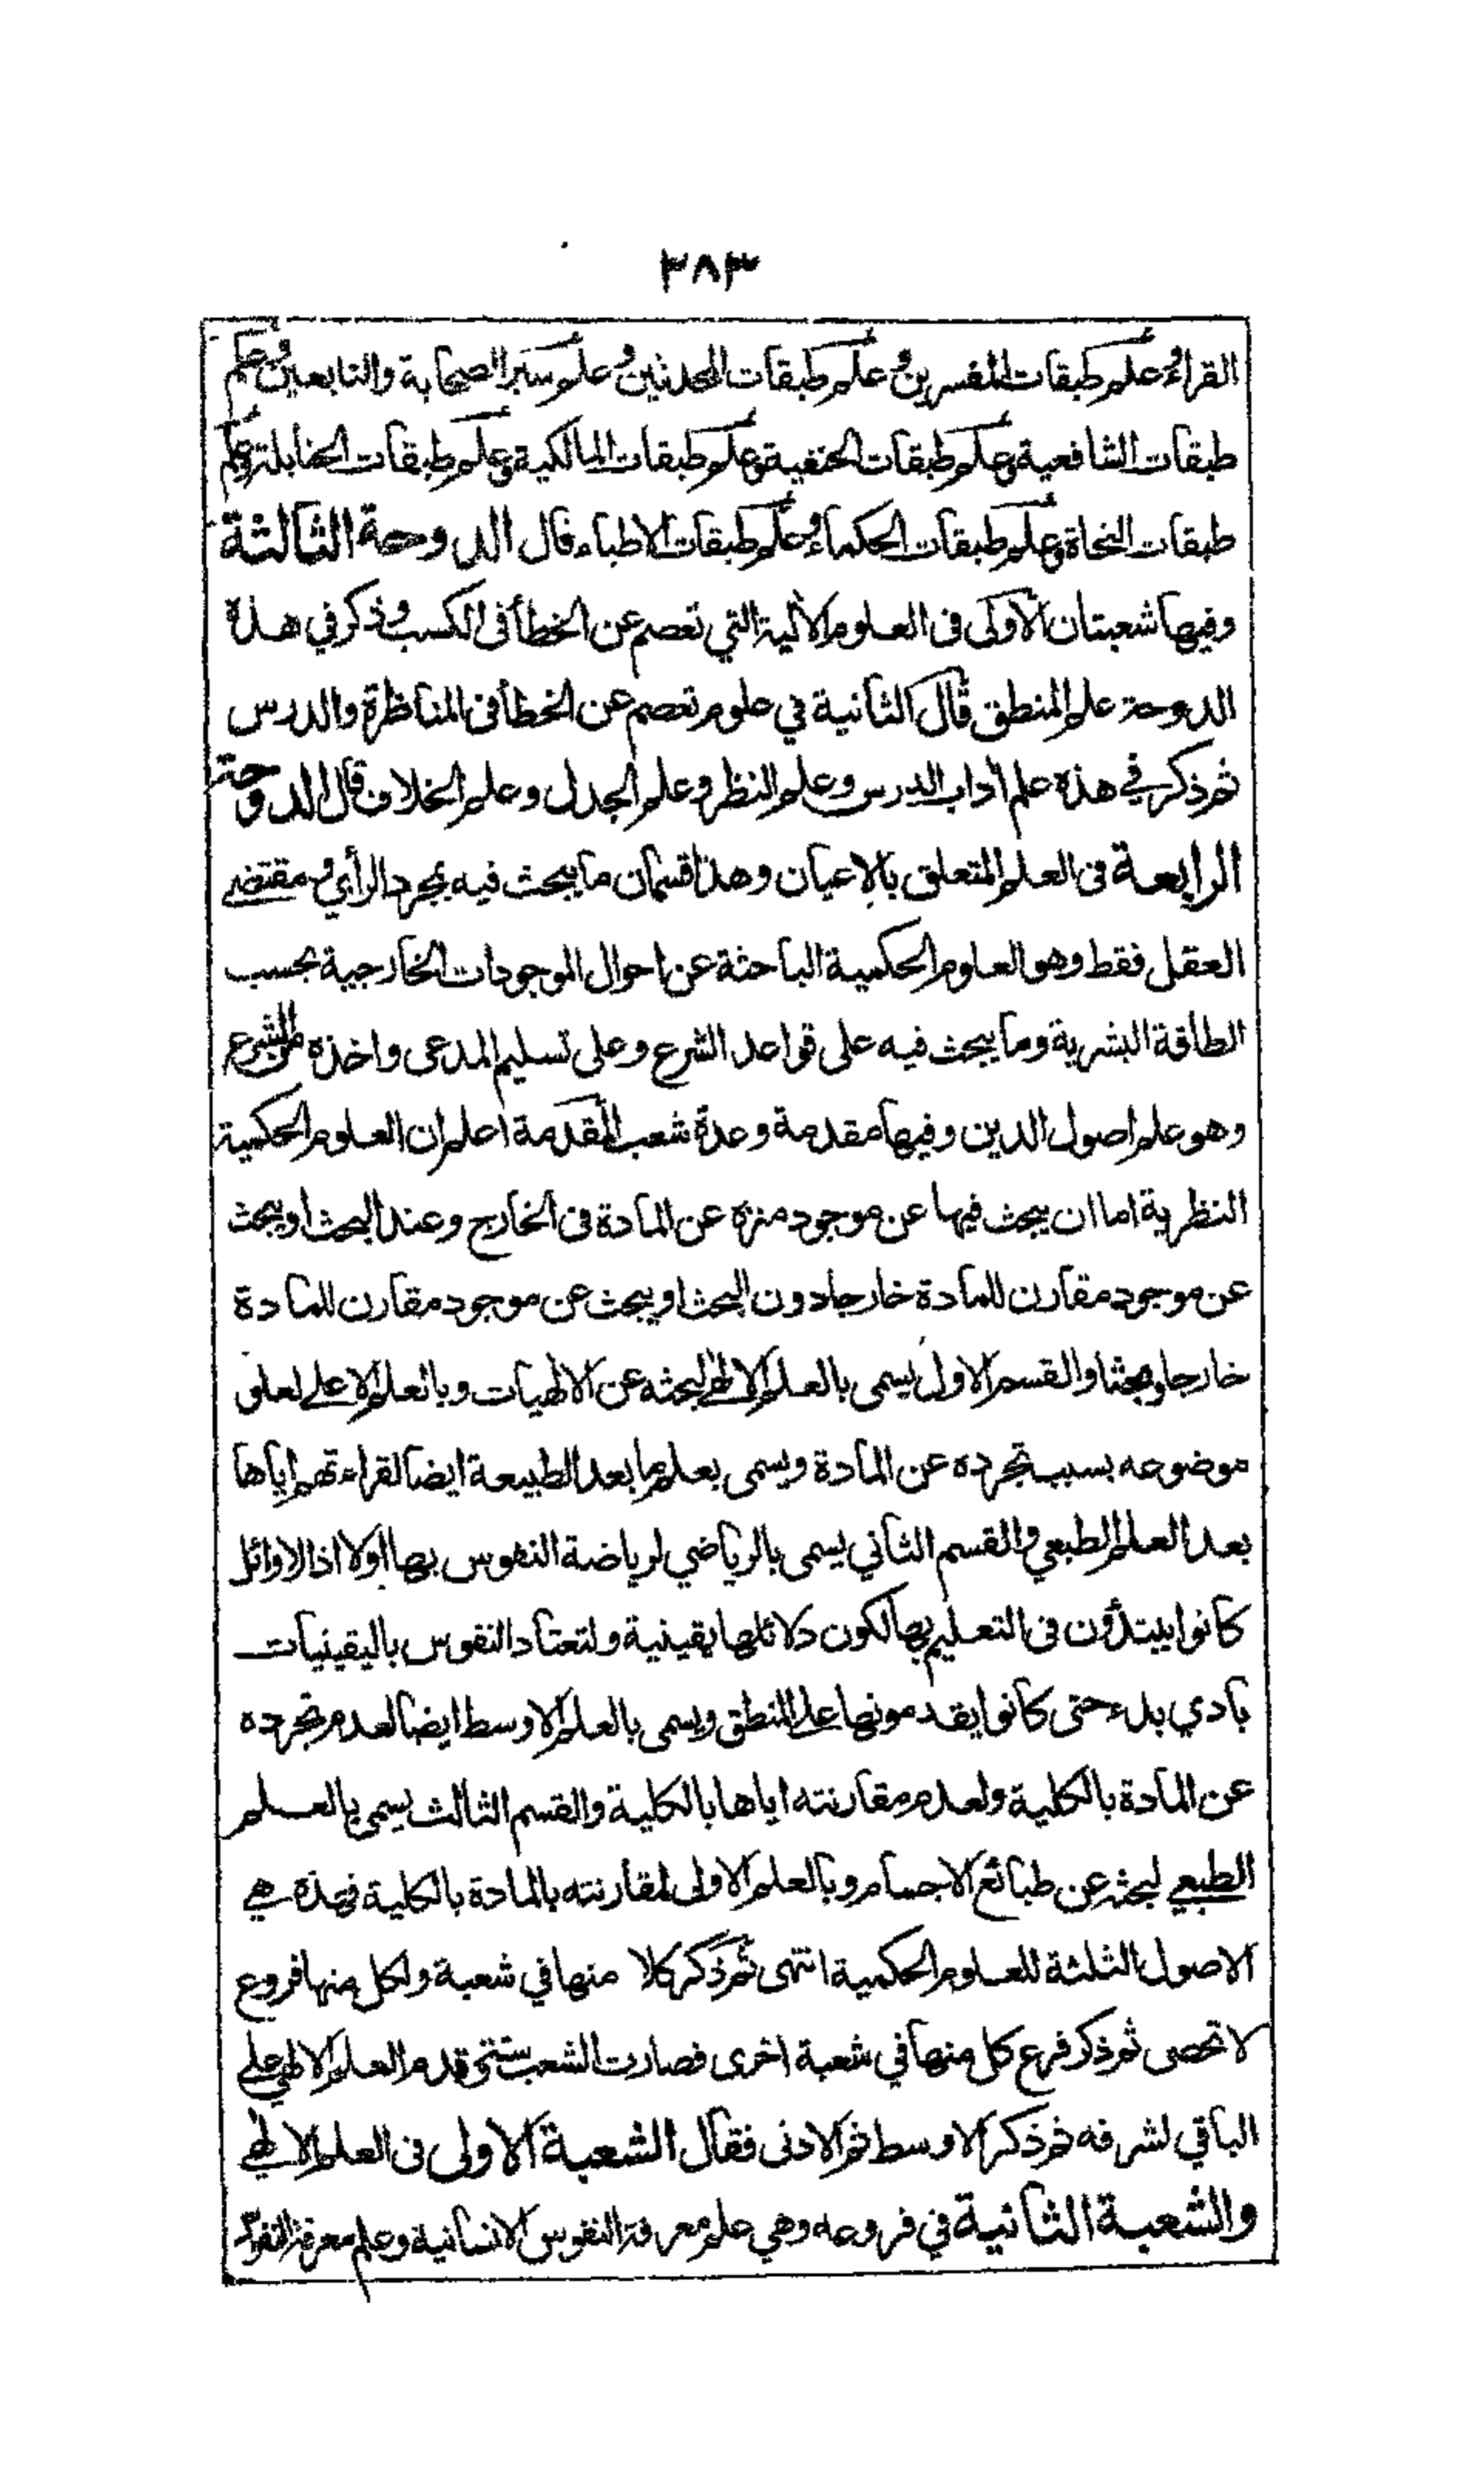 ٣٨٣
القراء وعلم طبقات المفسرين وعلم طبقات المحدثين وعلم سير الصحابة والتابعين وعلم
طبقات الشافعية وعلم طبقات الحنفية وعلم طبقات المالكية وعلم طبقات الحنابلة وعلم
طبقات النحاة وعلم طبقات الحكماء وعلم طبقات الاطباء قال الدوحة الثالثة
وفيها شعبتان الأولى فى العلوم الآلية التي تعصم عن الخطأ فى الكسب وذكر في هذه
الدوحة علم المنطق قال الثانية في علوم تعصم عن الخطأ فى المناظرة والدرس
ثم ذكر في هذه علم آداب الدرس وعلم النظر وعلم الجدل وعلم الخلاف قال الدوحة
الرابعة فى العلم المتعلق بالاعيان وهذا قسمان ما يبحث فيه بمجرد الرأي ومقتضى
العقل فقط وهو العلوم الحكمية الباحثة عن احوال الموجودات الخارجية بحسب
الطاقة البشرية وما يبحث فيه على قواعد الشرع وعلى تسليم المدعى واخذه من الشرع
وهو علم اصول الدين وفيها مقدمة وعدة شعب المقدمة اعلم ان العلوم الحكمية
النظرية اما ان يبحث فيها عن موجود منزه عن المادة فى الخارج وعند البحث او يبحث
عن موجود مقارن للمادة خارجا دون البحث او يبحث عن موجود مقارن للمادة
خارجا وبحثا والقسم الاول يسمى بالعلم الالهي لبحثه عن الالهيات وبالعلم الاعلى لعلو
موضوعه بسبب تجرده عن المادة ويسمى بعلم ما بعد الطبيعة ايضا لقراءتهم اياها
بعد العلم الطبعي والقسم الثاني يسمى بالرياضي لرياضة النفوس بها اولا اذ الاوائل
كانوا يبتدؤن فى التعليم بها لكون دلائلها يقينية ولتعتاد النفوس باليقينيات
بادي بدء حتى كانوا يقدمونها على المنطق ويسمى بالعلم الاوسط ايضا لعدم تجرده
عن المادة بالكلية ولعدم مقارنته اياها بالكلية والقسم الثالث يسمى بالعلم
الطبعي لبحثه عن طبائع الاجسام وبالعلم الاولى لمقارنته بالمادة بالكلية فهذه هي
الاصول الثلثة للعلوم الحكمية انتهى ثم ذكر كلا منها في شعبة ولكل منها فروع
لا تحصى ثم ذكر فرع كل منها في شعبة اخرى فصارت الشعب ستة وقدم العلم الالهي على
الباقي لشرفه ثم ذكر الاوسط ثم الادنى فقال الشعبة الاولى فى العلم الالهي
والشعبة الثانية في فروعه وهي علم معرفة النفوس الانسانية وعلم معرفة النفوس